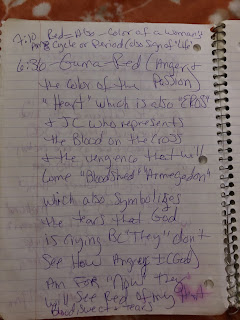 7:10 Red = Also - Color of a Woman's
Cycle or Period (also Sign of "Life"
6:36 - Guma - Red (Anger +
the Color of the Passion)
"Heart" which is also "EROS"
+ JC who represents
the Blood on the Cross
+ the vengence that will
Come "Bloodshed" "Armegedon"
Wich also Symbolizes
the tears that God
is crying BC "They" don't
See How Angry I (God)
Am FOR "Now they
will See Red of my
Blood Sweat + tears